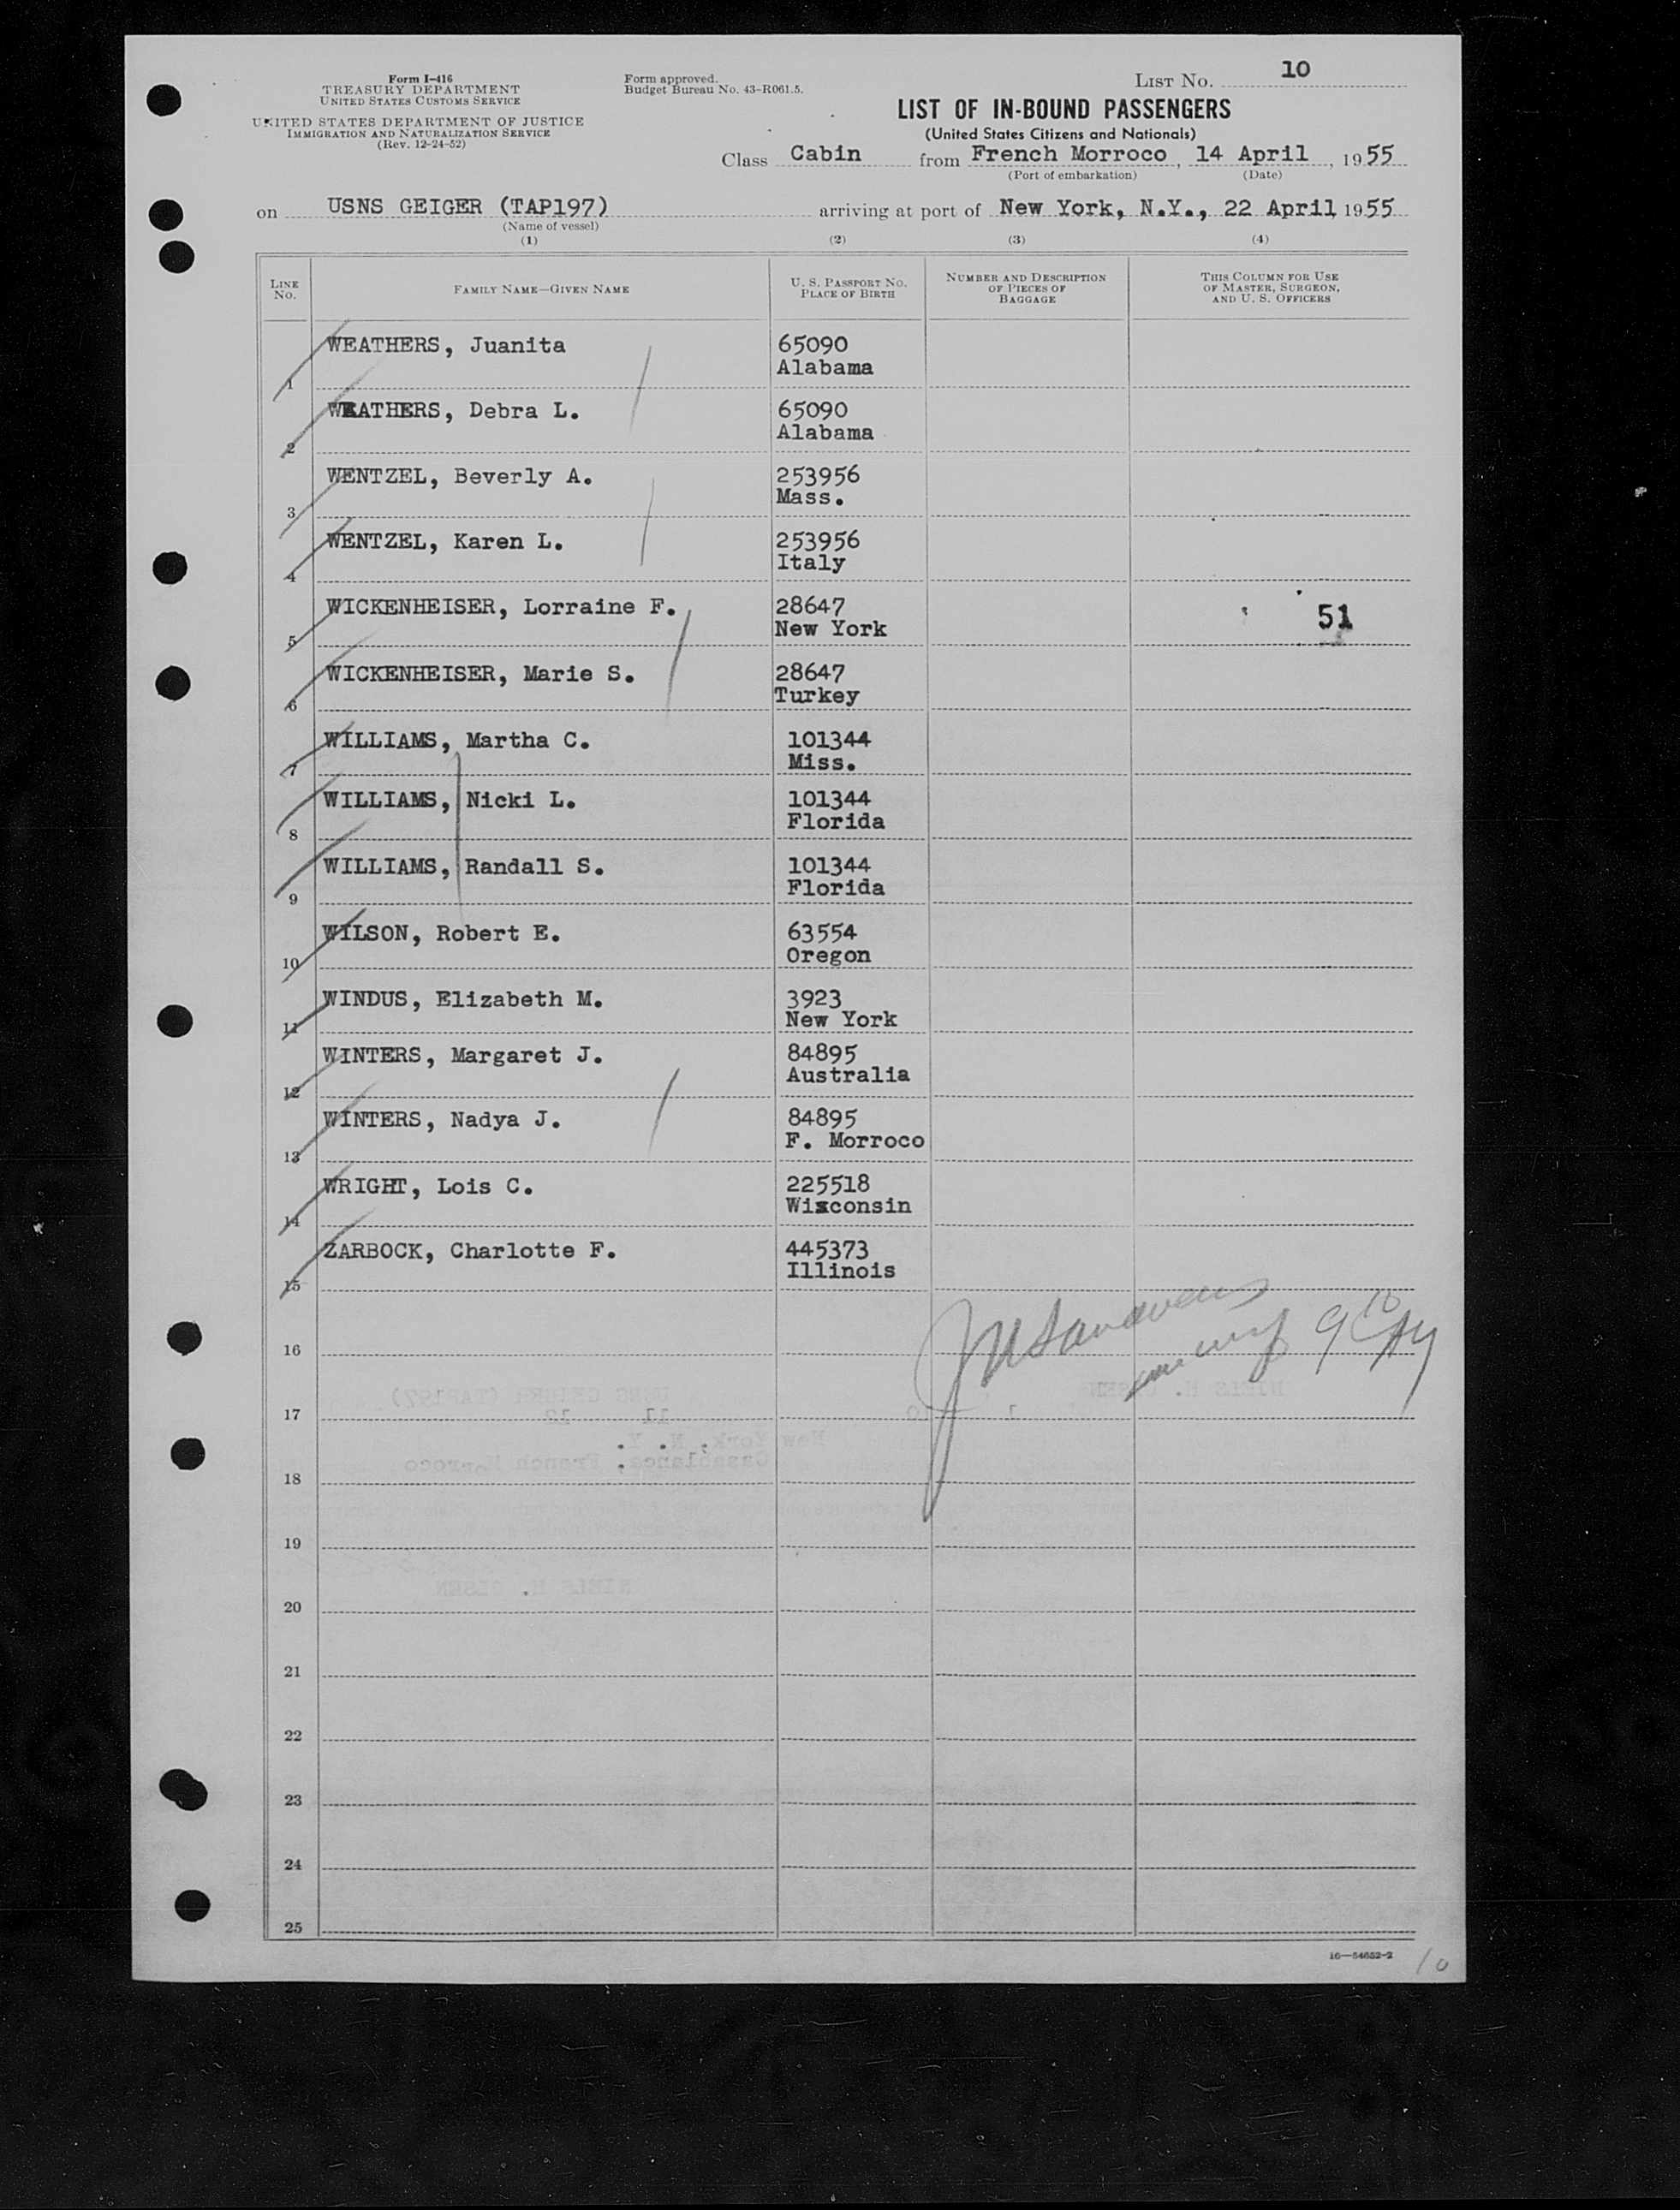 Form I-416
TREASURY DEPARTMENT
UNITED STATES CUSTOMS SERVICE
UNITED STATES DEPARTMENT OF JUSTICE
IMMIGRATION AND NATURALIZATION SERVICE
(Rev. 12-24-52)
Form approved.
Budget Bureau No. 43-R061.5.
LIST NO. 10
LIST OF IN-BOUND PASSENGERS
(United States Citizens and Nationals)
Class Cabin from French Morroco, 14 April, 1955
(Port of embarkation) (Date)
on USNS GEIGER (TAP197) arriving at port of New York, N.Y., 22 April, 1955
(Name of vessel)
(1) (2) (3) (4)
LINE NO. FAMILY NAME—GIVEN NAME U. S. PASSPORT NO. PLACE OF BIRTH NUMBER AND DESCRIPTION OF PIECES OF BAGGAGE THIS COLUMN FOR USE OF MASTER, SURGEON, AND U. S. OFFICERS
WEATHERS, Juanita 65090
1 Alabama
WEATHERS, Debra L. 65090
2 Alabama
WENTZEL, Beverly A. 253956
3 Mass.
WENTZEL, Karen L. 253956
4 Italy
WICKENHEISER, Lorraine F. 28647 51
5 New York
WICKENHEISER, Marie S. 28647
6 Turkey
WILLIAMS, Martha C. 101344
7 Miss.
WILLIAMS, Nicki L. 101344
8 Florida
WILLIAMS, Randall S. 101344
9 Florida
WILSON, Robert E. 63554
10 Oregon
WINDUS, Elizabeth M. 3923
11 New York
WINTERS, Margaret J. 84895
12 Australia
WINTERS, Nadya J. 84895
13 F. Morroco
WRIGHT, Lois C. 225518
14 Wisconsin
ZARBOCK, Charlotte F. 445373
15 Illinois
16
17
18
19
20
21
22
23
24
25
16—54652-2
10